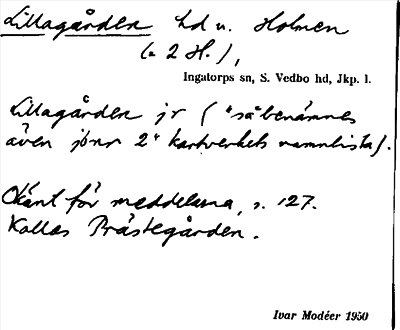 Lillagården hd u. Holmen
(= 2 H.),
Ingatorps sn, S. Vedbo hd, Jkp. l.
Lillagården jr ("så benämnes
även jbnr 2" kartverkets namnlista).
Okänt för meddelarna, s. 127.
Kallas Prästegården.
Ivar Modéer 1950